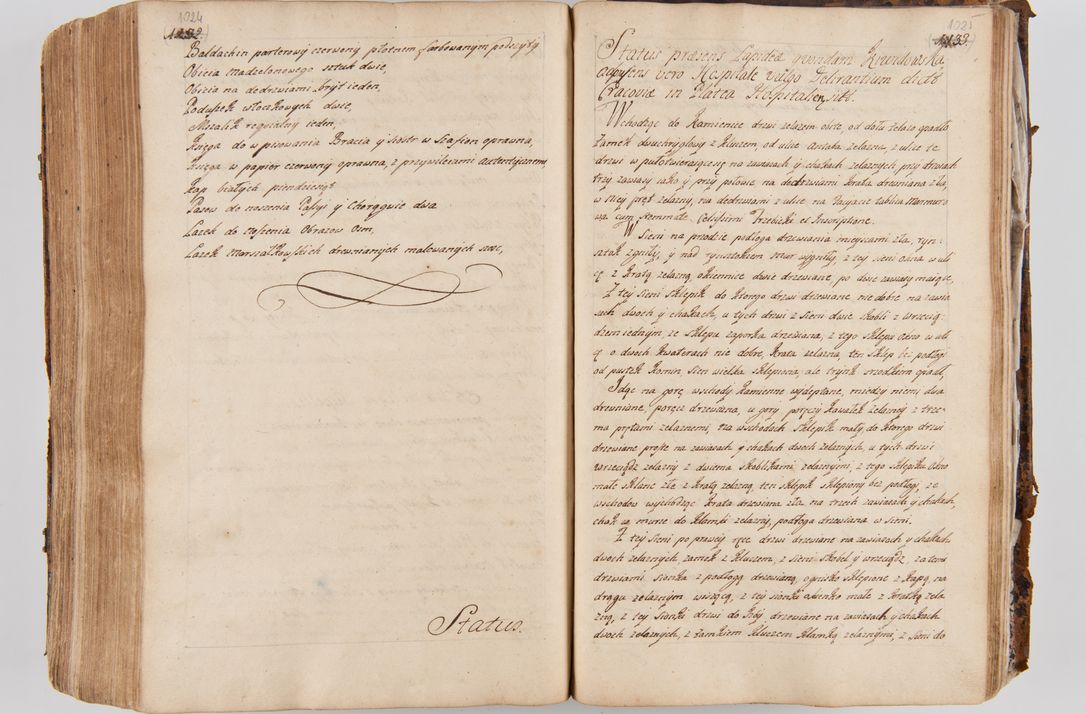 1024
1132.
Baldachin parterowy czerwony płotnem farbowanym podszyty
Obicia madzelonowego sztuk dwie,
Obicia na dedrzwiami bryt ieden,
Poduszek włoczkowych dwie,
Mszalik requialny ieden,
Xsięga do wpisowania Bracia y Siostr w Szafian oprawna,
Xsięga w papier czerwony oprawna, z przywileiami autentycznemi
Kap białych piendziesiąt
Pasow do noszenia Passyi y Chorągwie dwa
Lasek do noszenia Obrazow osm,
Lasek Marszałkowskich drewnianych malowanych szesc,
Status.
1025
1133
Status præsens Lapideæ quondam
ad præsens vero Hospitale vulgo Delirantium dictæ
Cracoviæ in Platea Hospitalensi sitæ.
Wchodząc do Kamienice drzwi zelazem obite, od dołu zelazo opadło
Zamek dwuchryglowy z Kluczem, od ulice Antaba zelazna, z ulice te
drzwi w pułotwieraiące się na zawiasach y chakach zelaznych przy drzwiach
trzy zawiasy iako y przy połowie na dedrzwiami Krata drewniana zła,
w niey pręt zelazny, na dedrzwiami z ulice na facyacie tablica Marmuro
wa cum Stemmate Celsissimi Trzebicki et Inscriptione.
W Sieni na przodzie podłoga drzewiana mieyscami zła, ryn-
sztok zgniły, y nad rynsztokiem mur wygniły, z tey sieni okna w uli
cę z Kratą zelazną okiennice dwie drzewiane, po dwie zawiasy maiące,
Z tey Sieni Sklepik do Ktorego drzwi drzewiane nie dobre na zawia
sach dwoch y chakach, u tych drzwi z Sieni dwie skobli z wrzecią-
dzem iednym, ze Sklepu zaporka drzewiana, z tego Sklepu okno w uli
cę o dwoch Kwaterach nie dobre, Krata zelazna, ten Sklep bez podłogi
od pustek Komin, Sien wielka sklepiona, ale tynk srzodkiem opadł,
Idąc na gorę wschody Kamienne wydeptane, między niemi dwa
drewniane, poręcz drzewiana, u gory poręczy Kawałek zelazney z trze-
ma prętami zelaznemi, na wschodach Sklepik mały, do Ktorego drzwi
drzewiane proste na zawiasach y chakach dwoch zelaznych, u tych drzwi
wrzeciądz zelazny z dwiema skoblikami zelaznymi, z tego Sklepiku okno
małe Sklane złe z Kratą zelazną, ten Sklepik sklepiony bez podłogi, ze
wschodow wychodząc Krata drzewiana zła na trzech zawiasach y chakach,
chak w murze do Klamki zelazny, podłoga drzewiana w Sieni.
Z tey Sieni po prawey ręce drzwi drzewiane na zawiasach y chakach
dwoch zelaznych, zamek z Kluczem, z Sieni skobel y wrzeciądz, za temi
drzwiami, sionka z podłogą drzewianą, ognisko sklepione z Kapą, na
drągu zelaznym wiszącą, z tey sionki okienko małe z Kratką zela
zną, z tey Sionki drzwi do Izby drzewiane na zawiasach y chakach
dwoch zelaznych, z zamkiem Kluczem Klamką zelaznymi, z Sieni do